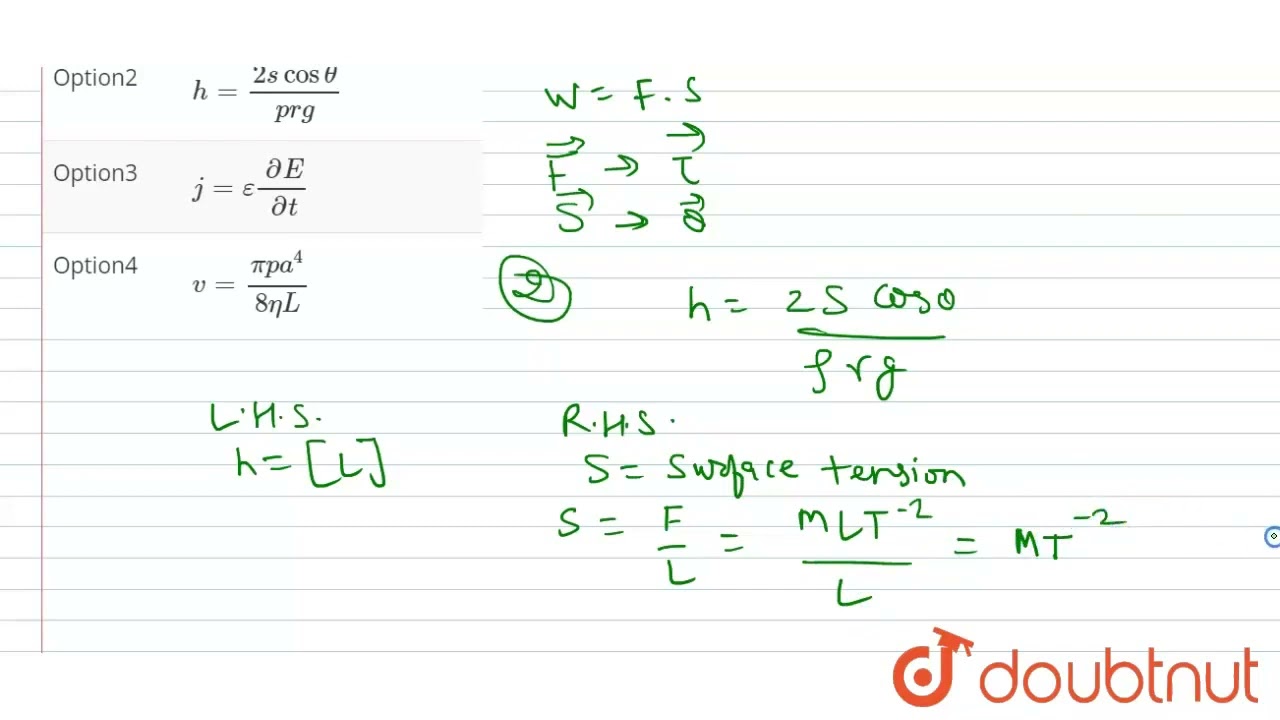 Option2 h = 2s cos θ / prg
Option3 j = ε ∂E / ∂t
Option4 v = πpa⁴ / 8ηL
W = F . S
F⃗ → τ⃗
S⃗ → θ⃗
② h = 2S cosθ / ρrg
L.H.S. R.H.S.
h = [L] S = Surface tension
S = F / L = MLT⁻² / L = MT⁻²
doubtnut